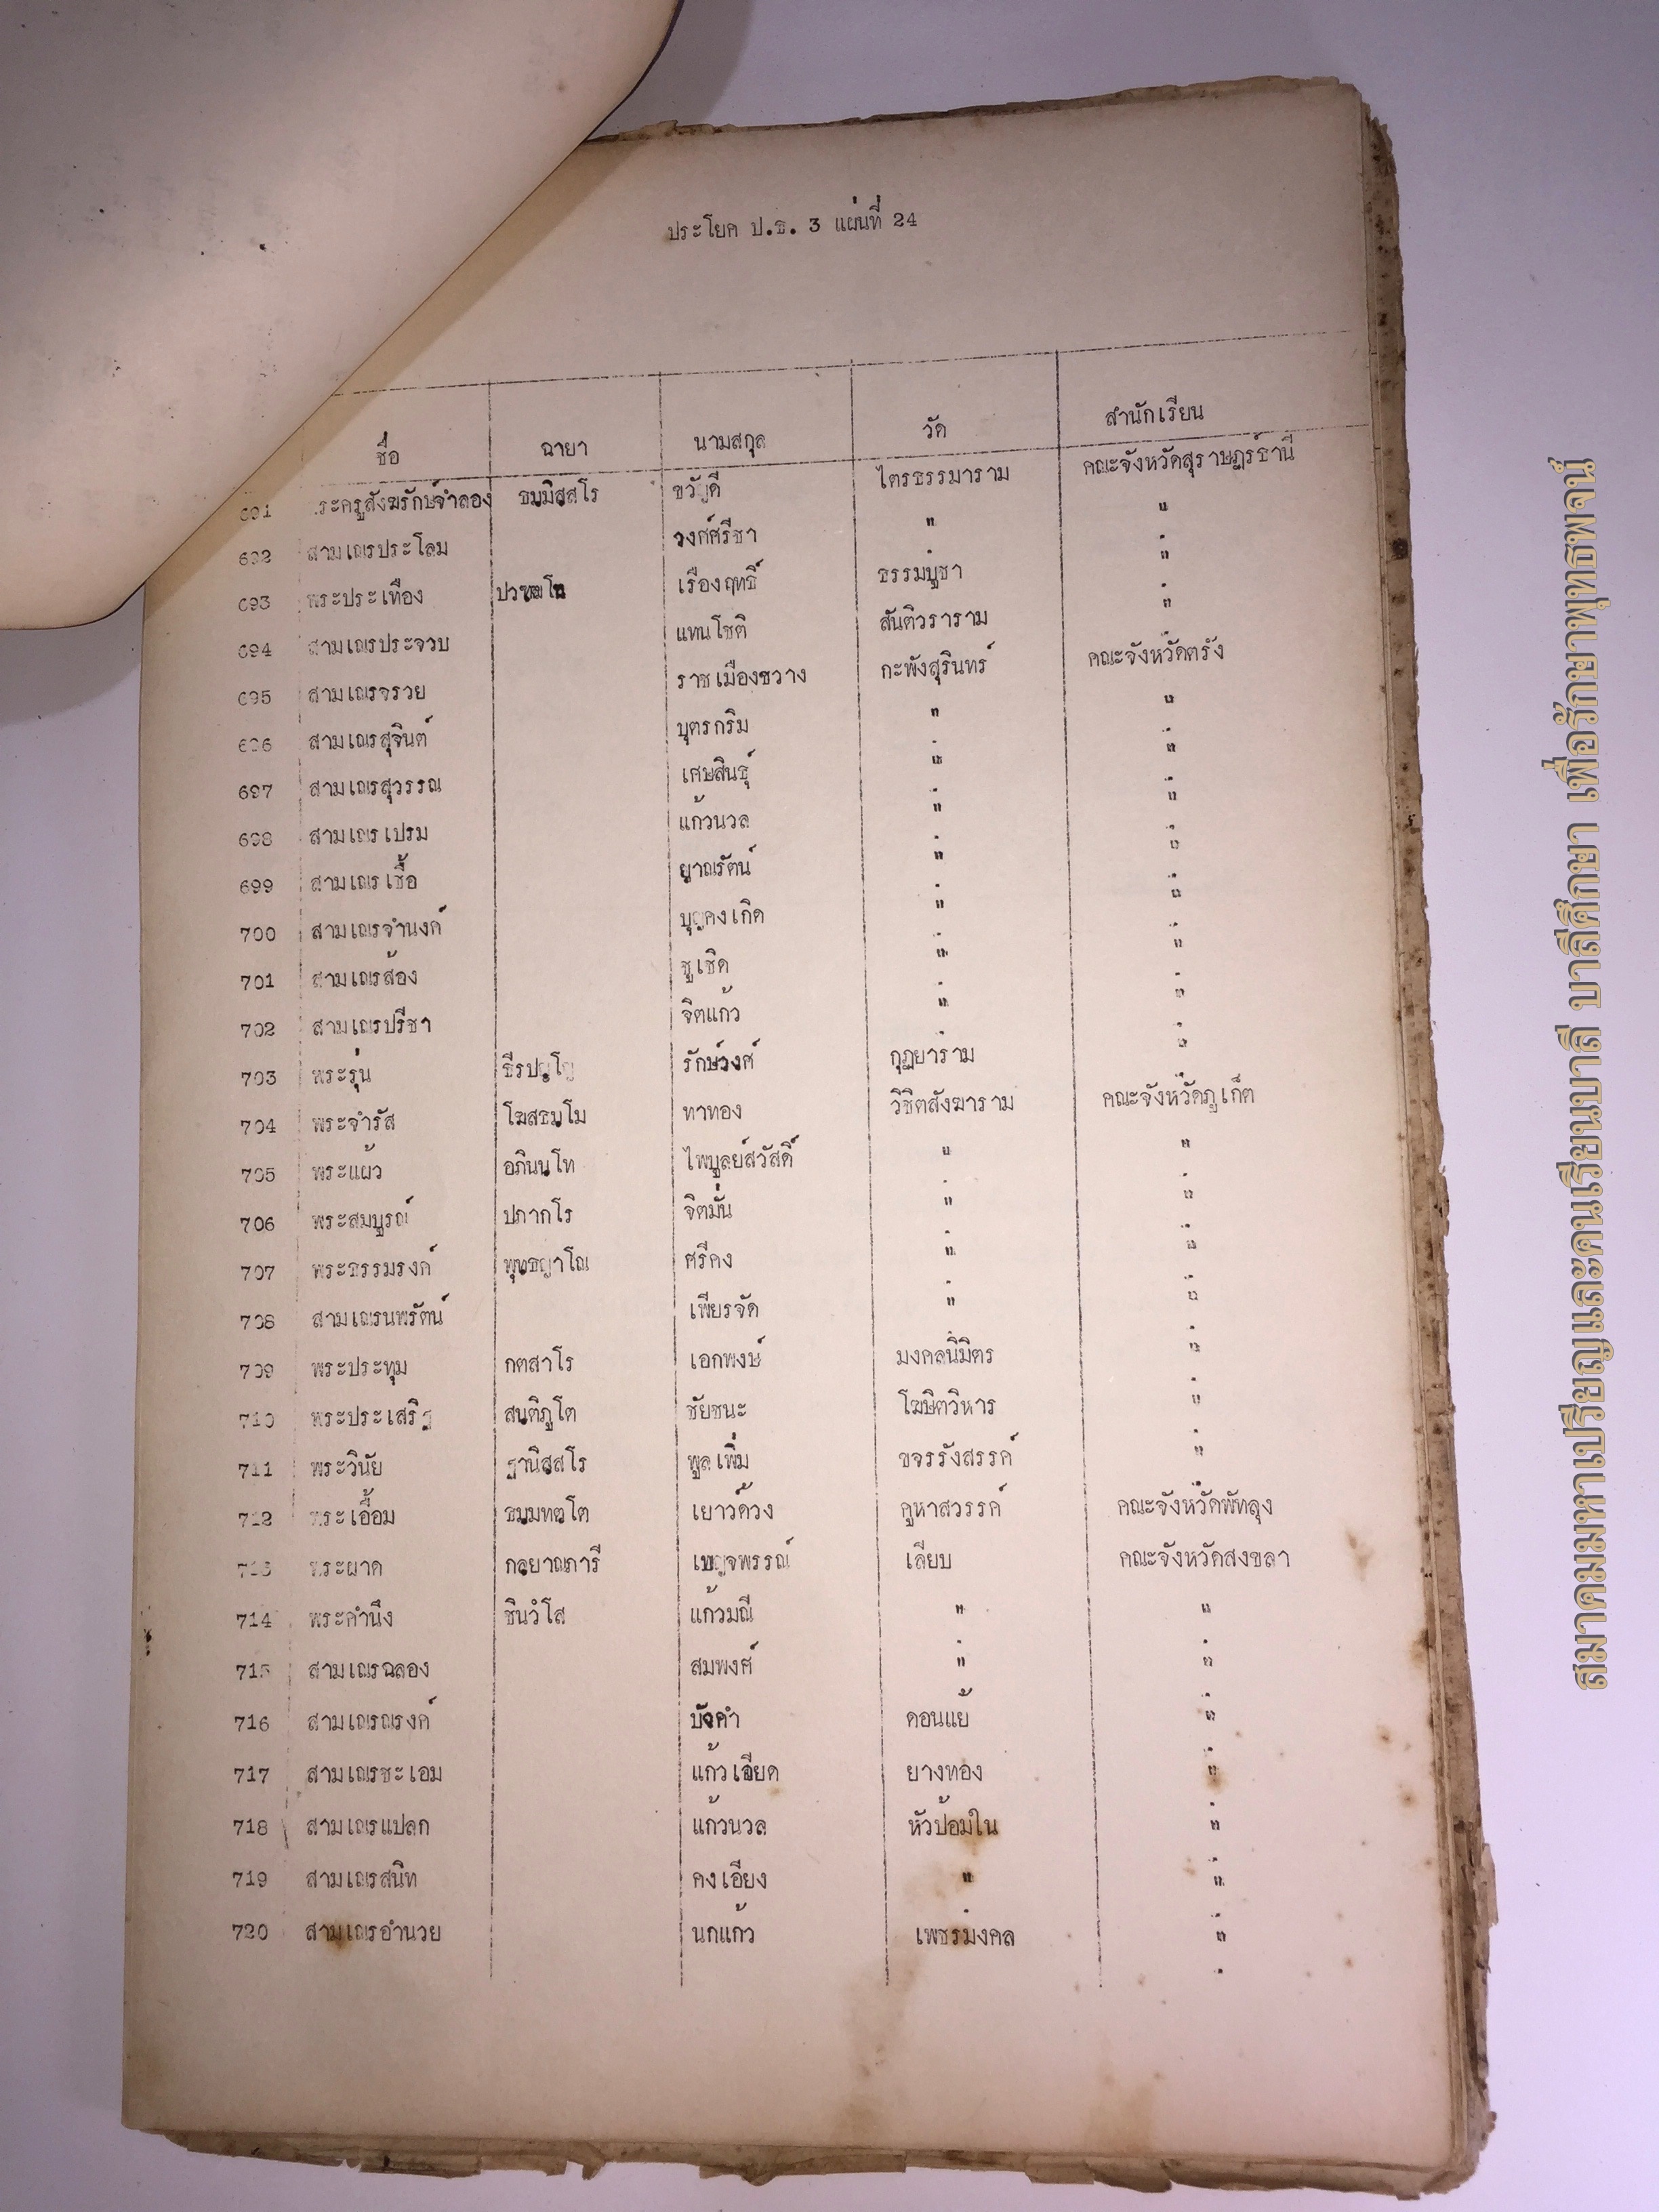 ประโยค ป.ธ. 3 แผ่นที่ 24
ชื่อ ฉายา นามสกุล วัด สำนักเรียน
691 พระครูสังฆรักษ์จำลอง ธมฺมิสฺสโร ขวัญดี ไตรธรรมาราม คณะจังหวัดสุราษฎร์ธานี
692 สามเณรประโลม วงศ์ศรีชา " "
693 พระประเทือง เรืองฤทธิ์ ธรรมบูชา "
694 สามเณรประจวบ แทนโชติ สันติวราราม "
695 สามเณรจรวย ราชเมืองขวาง กะพังสุรินทร์ คณะจังหวัดตรัง
696 สามเณรสุจินต์ บุตรกริม " "
697 สามเณรสุวรรณ เศษสินธุ์ " "
698 สามเณรเปรม แก้วนวล " "
699 สามเณรเชื้อ ญาณรัตน์ " "
700 สามเณรจำนงค์ บุญคงเกิด " "
701 สามเณรส้อง ชูเชิด " "
702 สามเณรปรีชา จิตแก้ว " "
703 พระรุ่น ธีรปญฺโญ รักษ์วงศ์ กุฏยาราม "
704 พระจำรัส โฆสธมฺโม ทาทอง วิชิตสังฆาราม คณะจังหวัดภูเก็ต
705 พระแผ้ว อภินนฺโท ไพบูลย์สวัสดิ์ " "
706 พระสมบูรณ์ ปภากโร จิตมั่น " "
707 พระธรรมรงค์ พุทฺธญาโณ ศรีคง " "
708 สามเณรนพรัตน์ เพียรจัด " "
709 พระประทุม กตสาโร เอกพงษ์ มงคลนิมิตร "
710 พระประเสริฐ สนฺติภูโต ชัยชนะ โฆษิตวิหาร "
711 พระวินัย ฐานิสฺสโร พูลเพิ่ม ขจรรังสรรค์ "
712 พระเอื้อม ธมฺมทตฺโต เยาว์ด้วง คูหาสวรรค์ คณะจังหวัดพัทลุง
713 พระผาด กลฺยาณการี เบญจพรรณ์ เลียบ คณะจังหวัดสงขลา
714 พระคำนึง ชินวํโส แก้วมณี " "
715 สามเณรฉลอง สมพงศ์ " "
716 สามเณรณรงค์ บัวคำ ดอนแย้ "
717 สามเณรชะเอม แก้วเอียด ยางทอง "
718 สามเณรแปลก แก้วนวล หัวป้อมใน "
719 สามเณรสนิท คงเอียง " "
720 สามเณรอำนวย นกแก้ว เพชรมงคล "
สมาคมมหาเปรียญและคนเรียนบาลี บาลีศึกษา เพื่อรักษาพุทธพจน์